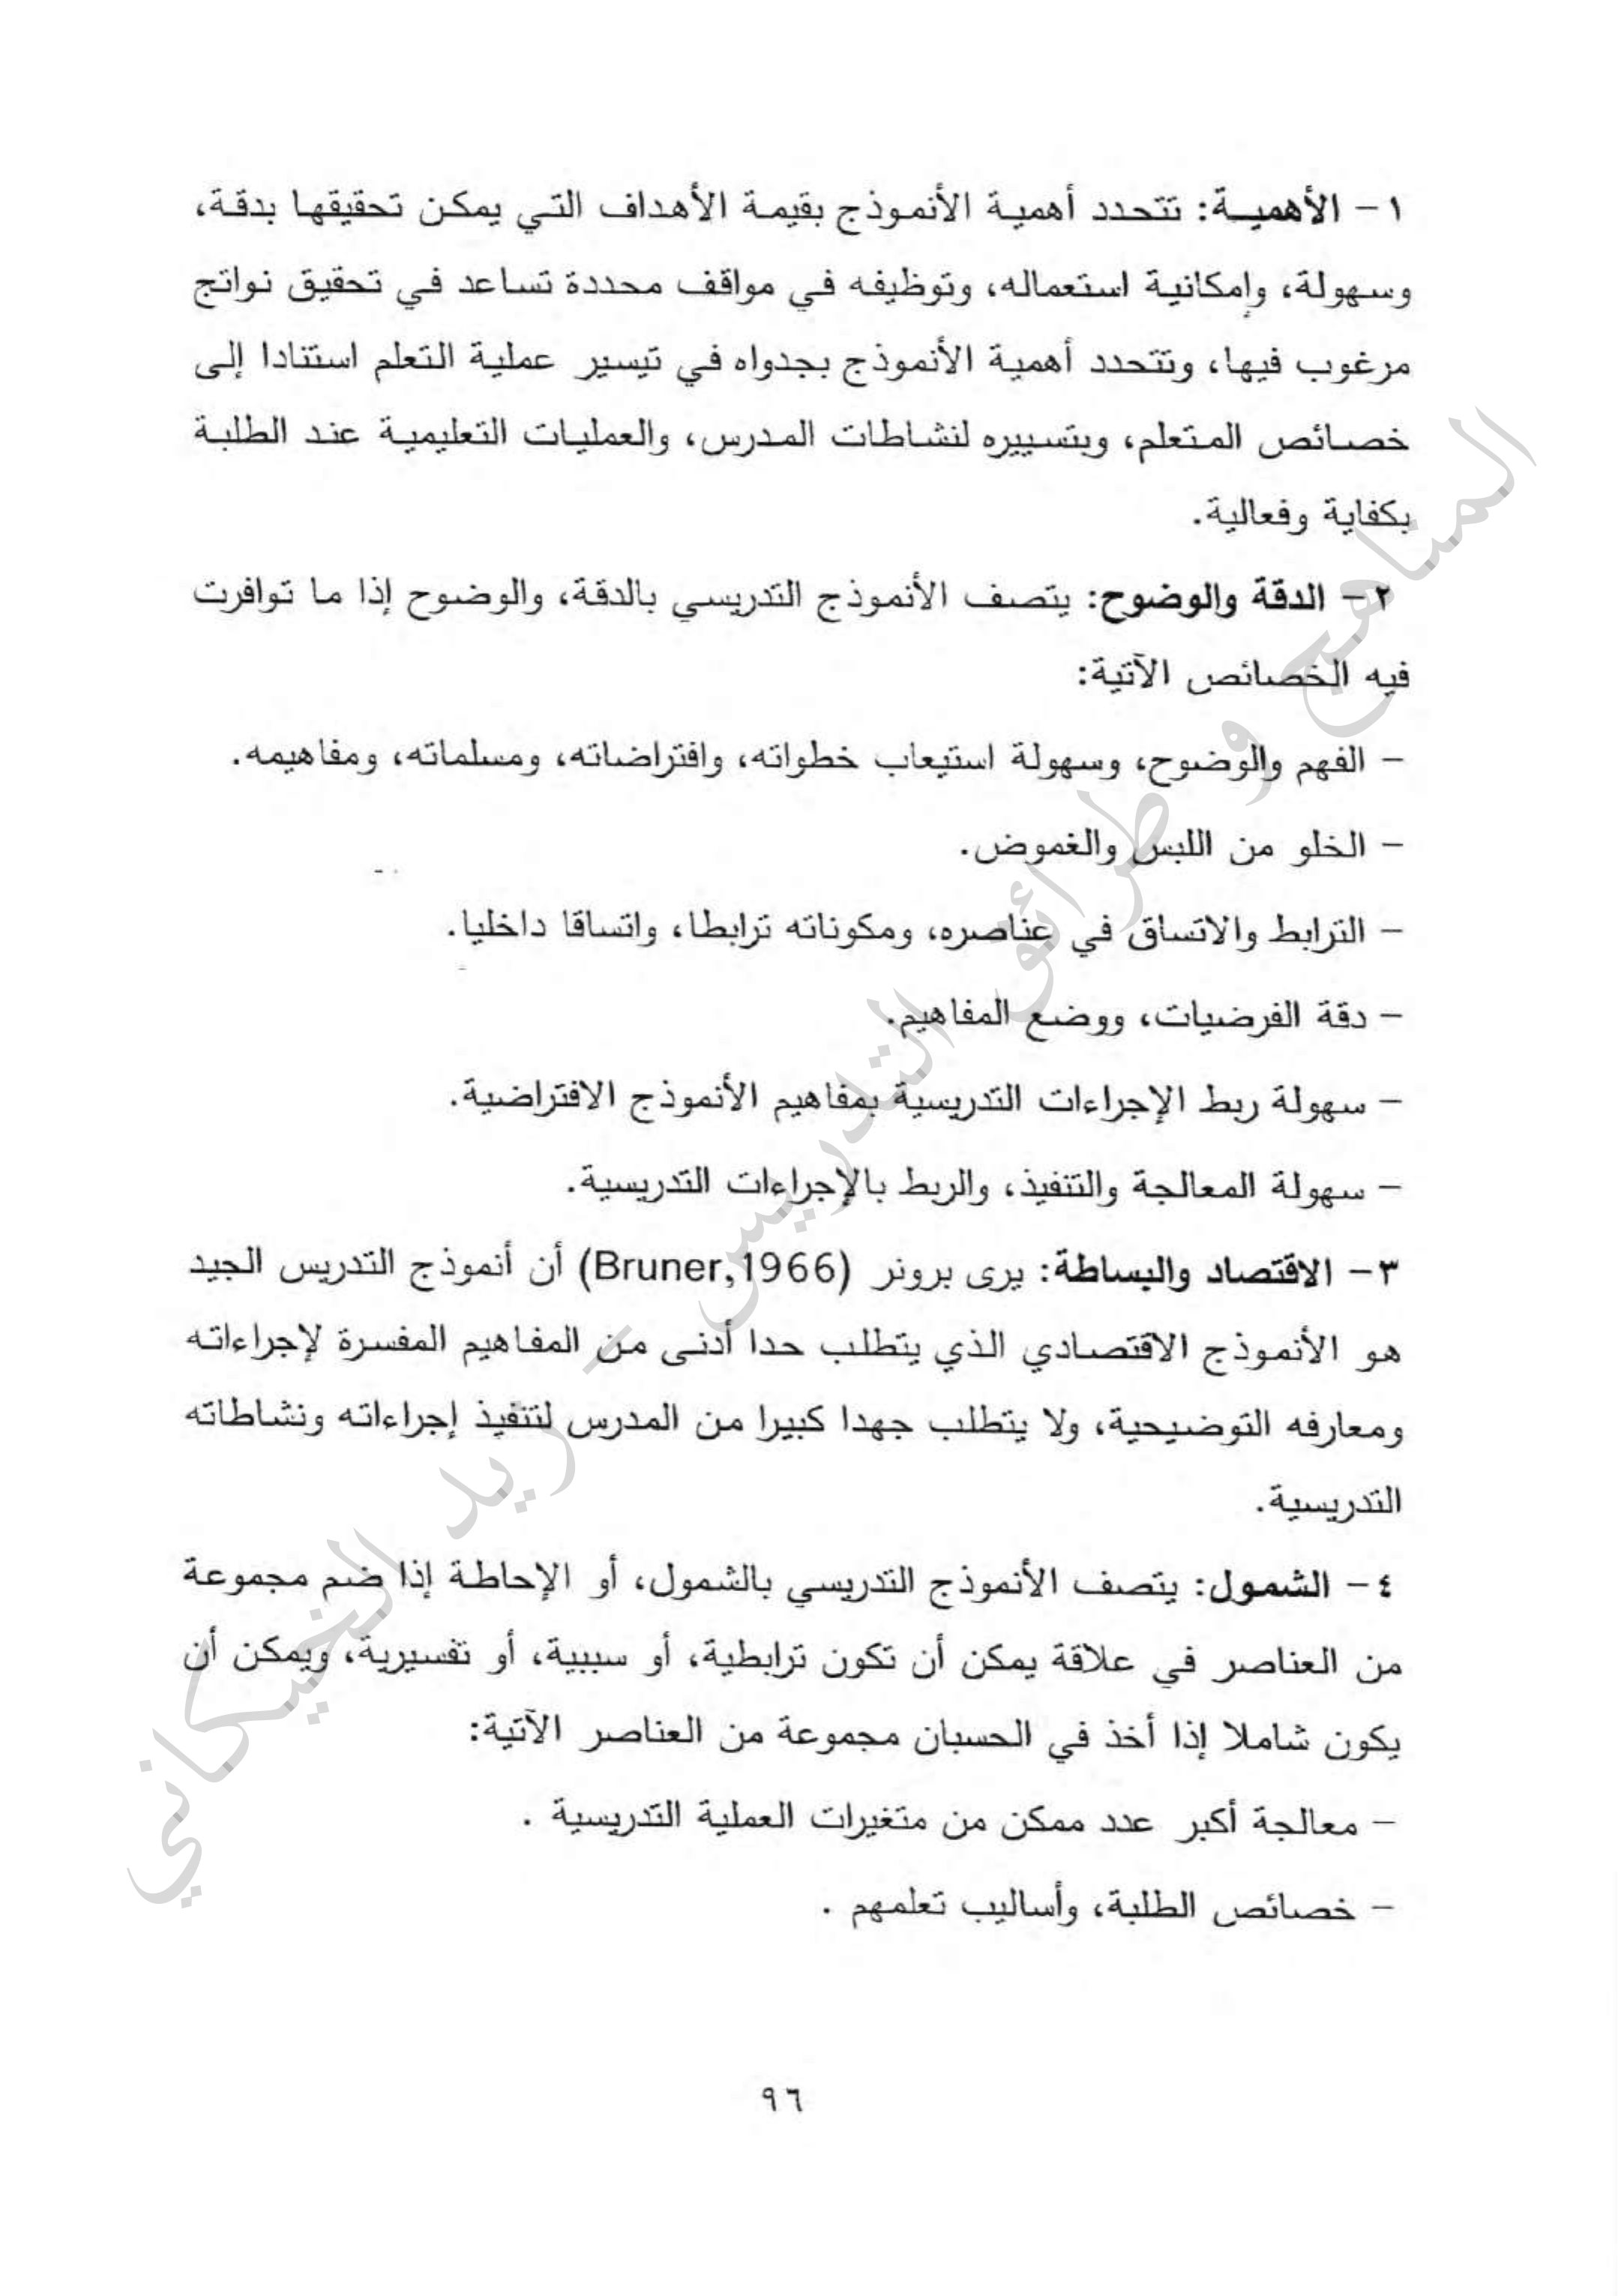 ١- الأهمية: تتحدد أهمية الأنموذج بقيمة الأهداف التي يمكن تحقيقها بدقة،
وسهولة، وإمكانية استعماله، وتوظيفه في مواقف محددة تساعد في تحقيق نواتج
مرغوب فيها، وتتحدد أهمية الأنموذج بجدواه في تيسير عملية التعلم استنادا إلى
خصائص المتعلم، وبتسييره لنشاطات المدرس، والعمليات التعليمية عند الطلبة
بكفاية وفعالية.
٢- الدقة والوضوح: يتصف الأنموذج التدريسي بالدقة، والوضوح إذا ما توافرت
فيه الخصائص الآتية:
- الفهم والوضوح، وسهولة استيعاب خطواته، وافتراضاته، ومسلماته، ومفاهيمه.
- الخلو من اللبس والغموض.
- الترابط والاتساق في عناصره، ومكوناته ترابطا، واتساقا داخليا.
- دقة الفرضيات، ووضع المفاهيم.
- سهولة ربط الإجراءات التدريسية بمفاهيم الأنموذج الافتراضية.
- سهولة المعالجة والتنفيذ، والربط بالإجراءات التدريسية.
٣- الاقتصاد والبساطة: يرى برونر (Bruner,1966) أن أنموذج التدريس الجيد
هو الأنموذج الاقتصادي الذي يتطلب حدا أدنى من المفاهيم المفسرة لإجراءاته
ومعارفه التوضيحية، ولا يتطلب جهدا كبيرا من المدرس لتنفيذ إجراءاته ونشاطاته
التدريسية.
٤- الشمول: يتصف الأنموذج التدريسي بالشمول، أو الإحاطة إذا ضم مجموعة
من العناصر في علاقة يمكن أن تكون ترابطية، أو سببية، أو تفسيرية، ويمكن أن
يكون شاملا إذا أخذ في الحسبان مجموعة من العناصر الآتية:
- معالجة أكبر عدد ممكن من متغيرات العملية التدريسية .
- خصائص الطلبة، وأساليب تعلمهم .
٩٦
المناهج و طرائق التدريس - زيد الخيكاني